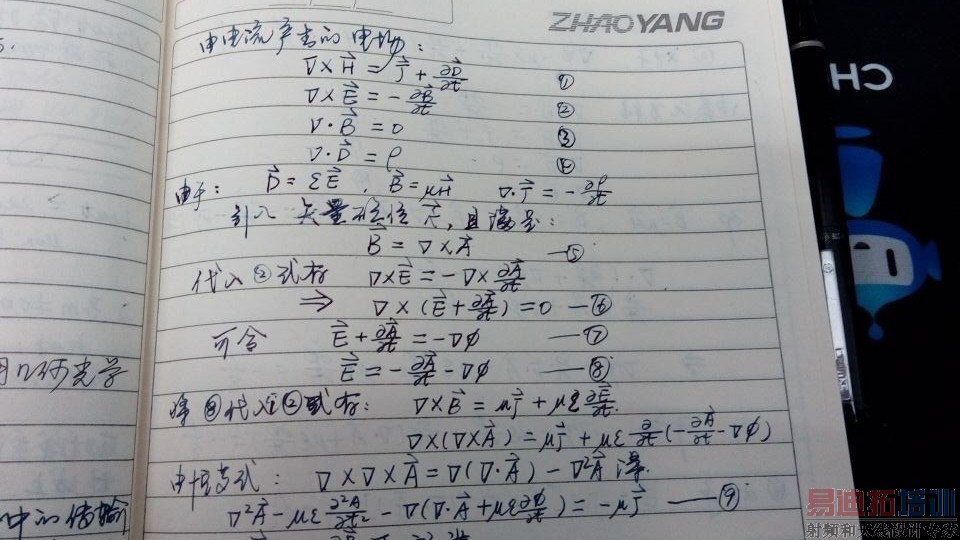 ZHAOYANG
由电流产生的电场：
∇×H⃗ = J⃗ + ∂D⃗/∂t ①
∇×E⃗ = -∂B⃗/∂t ②
∇·B⃗ = 0 ③
∇·D⃗ = ρ ④
由于： D⃗ = εE⃗ , B⃗ = μH⃗ ∇·J⃗ = -∂ρ/∂t
引入矢量磁位A⃗, 且满足：
B⃗ = ∇×A⃗ —⑤
代入②式有 ∇×E⃗ = -∇×∂A⃗/∂t
⇒ ∇×(E⃗+∂A⃗/∂t) = 0 —⑥
可令 E⃗+∂A⃗/∂t = -∇φ —⑦
E⃗ = -∂A⃗/∂t - ∇φ —⑧
将⑧代入②式有： ∇×B⃗ = μJ⃗ + με∂E⃗/∂t.
∇×(∇×A⃗) = μJ⃗ + με ∂/∂t(-∂A⃗/∂t - ∇φ)
由恒等式： ∇×∇×A⃗ = ∇(∇·A⃗) - ∇²A⃗ 得.
∇²A⃗ - με∂²A⃗/∂t² - ∇(∇·A⃗+με∂φ/∂t) = -μJ⃗ —⑨
几何光学
中的传输
CH
易迪拓培训
射频和天线设计专家